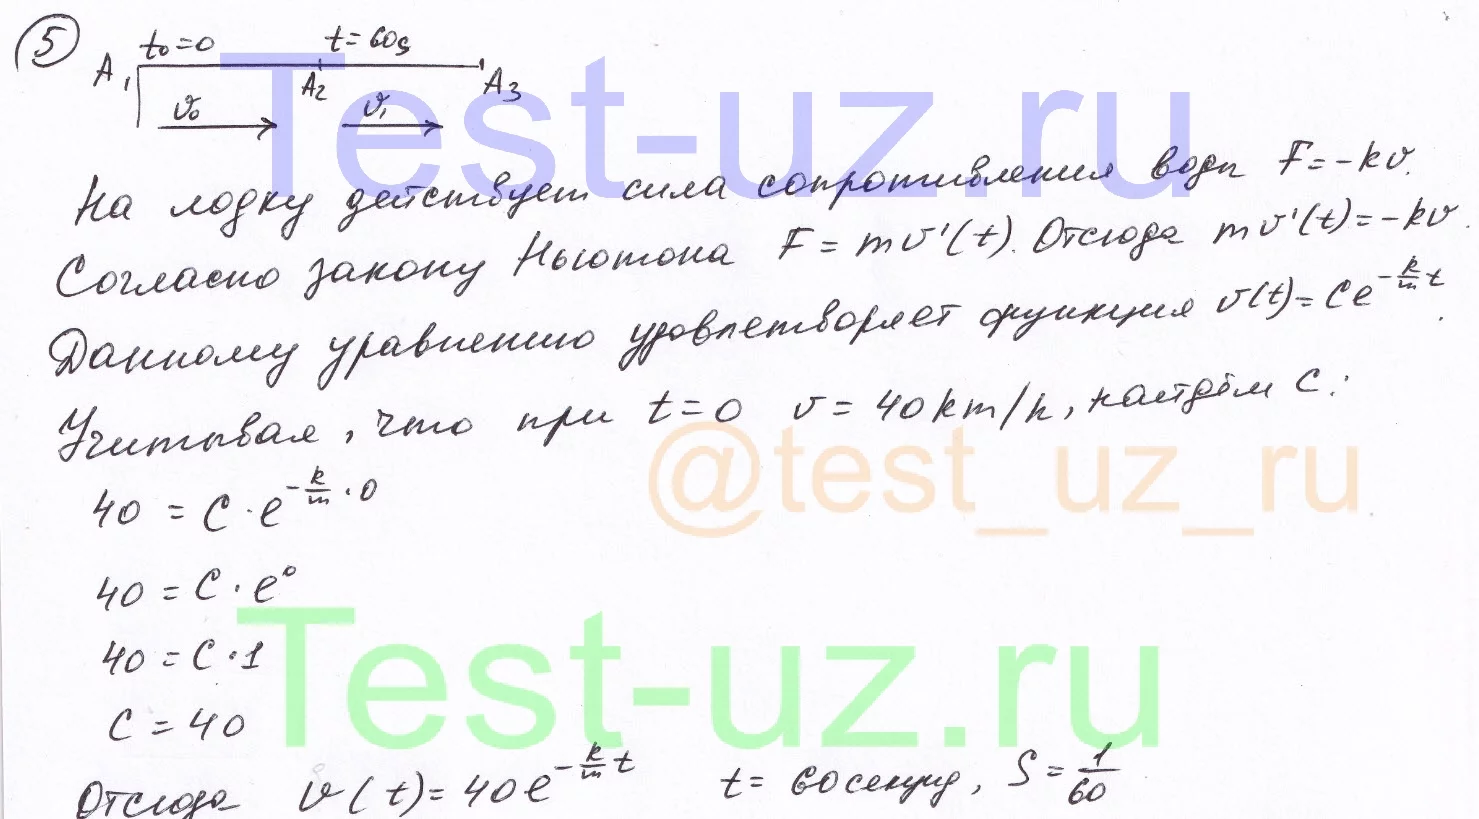 5
t₀=0 t=60s
A₁ A₂ A₃
v₀ v₁
Test-uz.ru
На лодку действует сила сопротивления воды F=-kv.
Согласно закону Ньютона F=mv'(t). Отсюда mv'(t)=-kv.
Данному уравнению удовлетворяет функция v(t)=Ce^{-\frac{k}{m}t}.
Учитывая, что при t=0 v=40km/h, найдём C:
@test_uz_ru
40 = C·e^{-\frac{k}{m}·0}
40 = C·e⁰
Test-uz.ru
40 = C·1
C = 40
Отсюда v(t)=40e^{-\frac{k}{m}t} t= 60 секунд, S=\frac{1}{60}